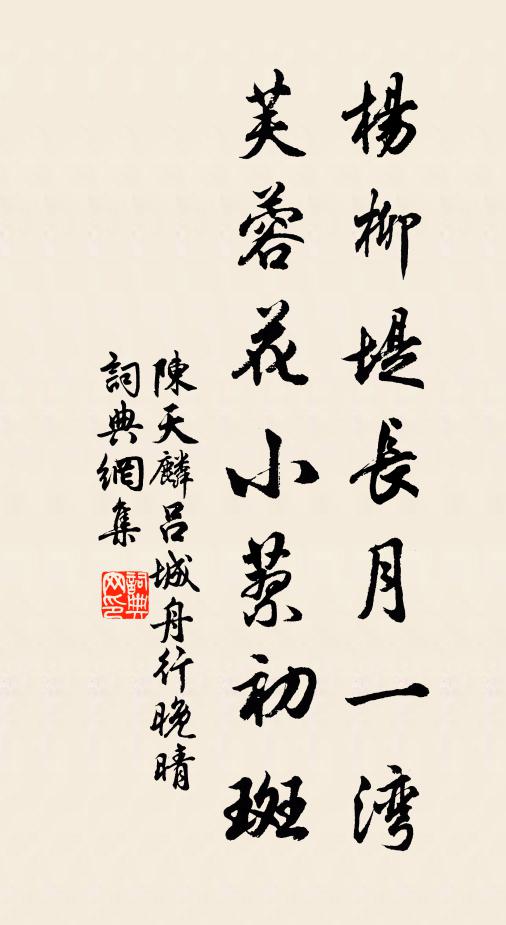 楊柳堤長月一湾
芙蓉花小蔡初斑
陳天麟吕城舟行晚晴
詞典網集
詞典网印